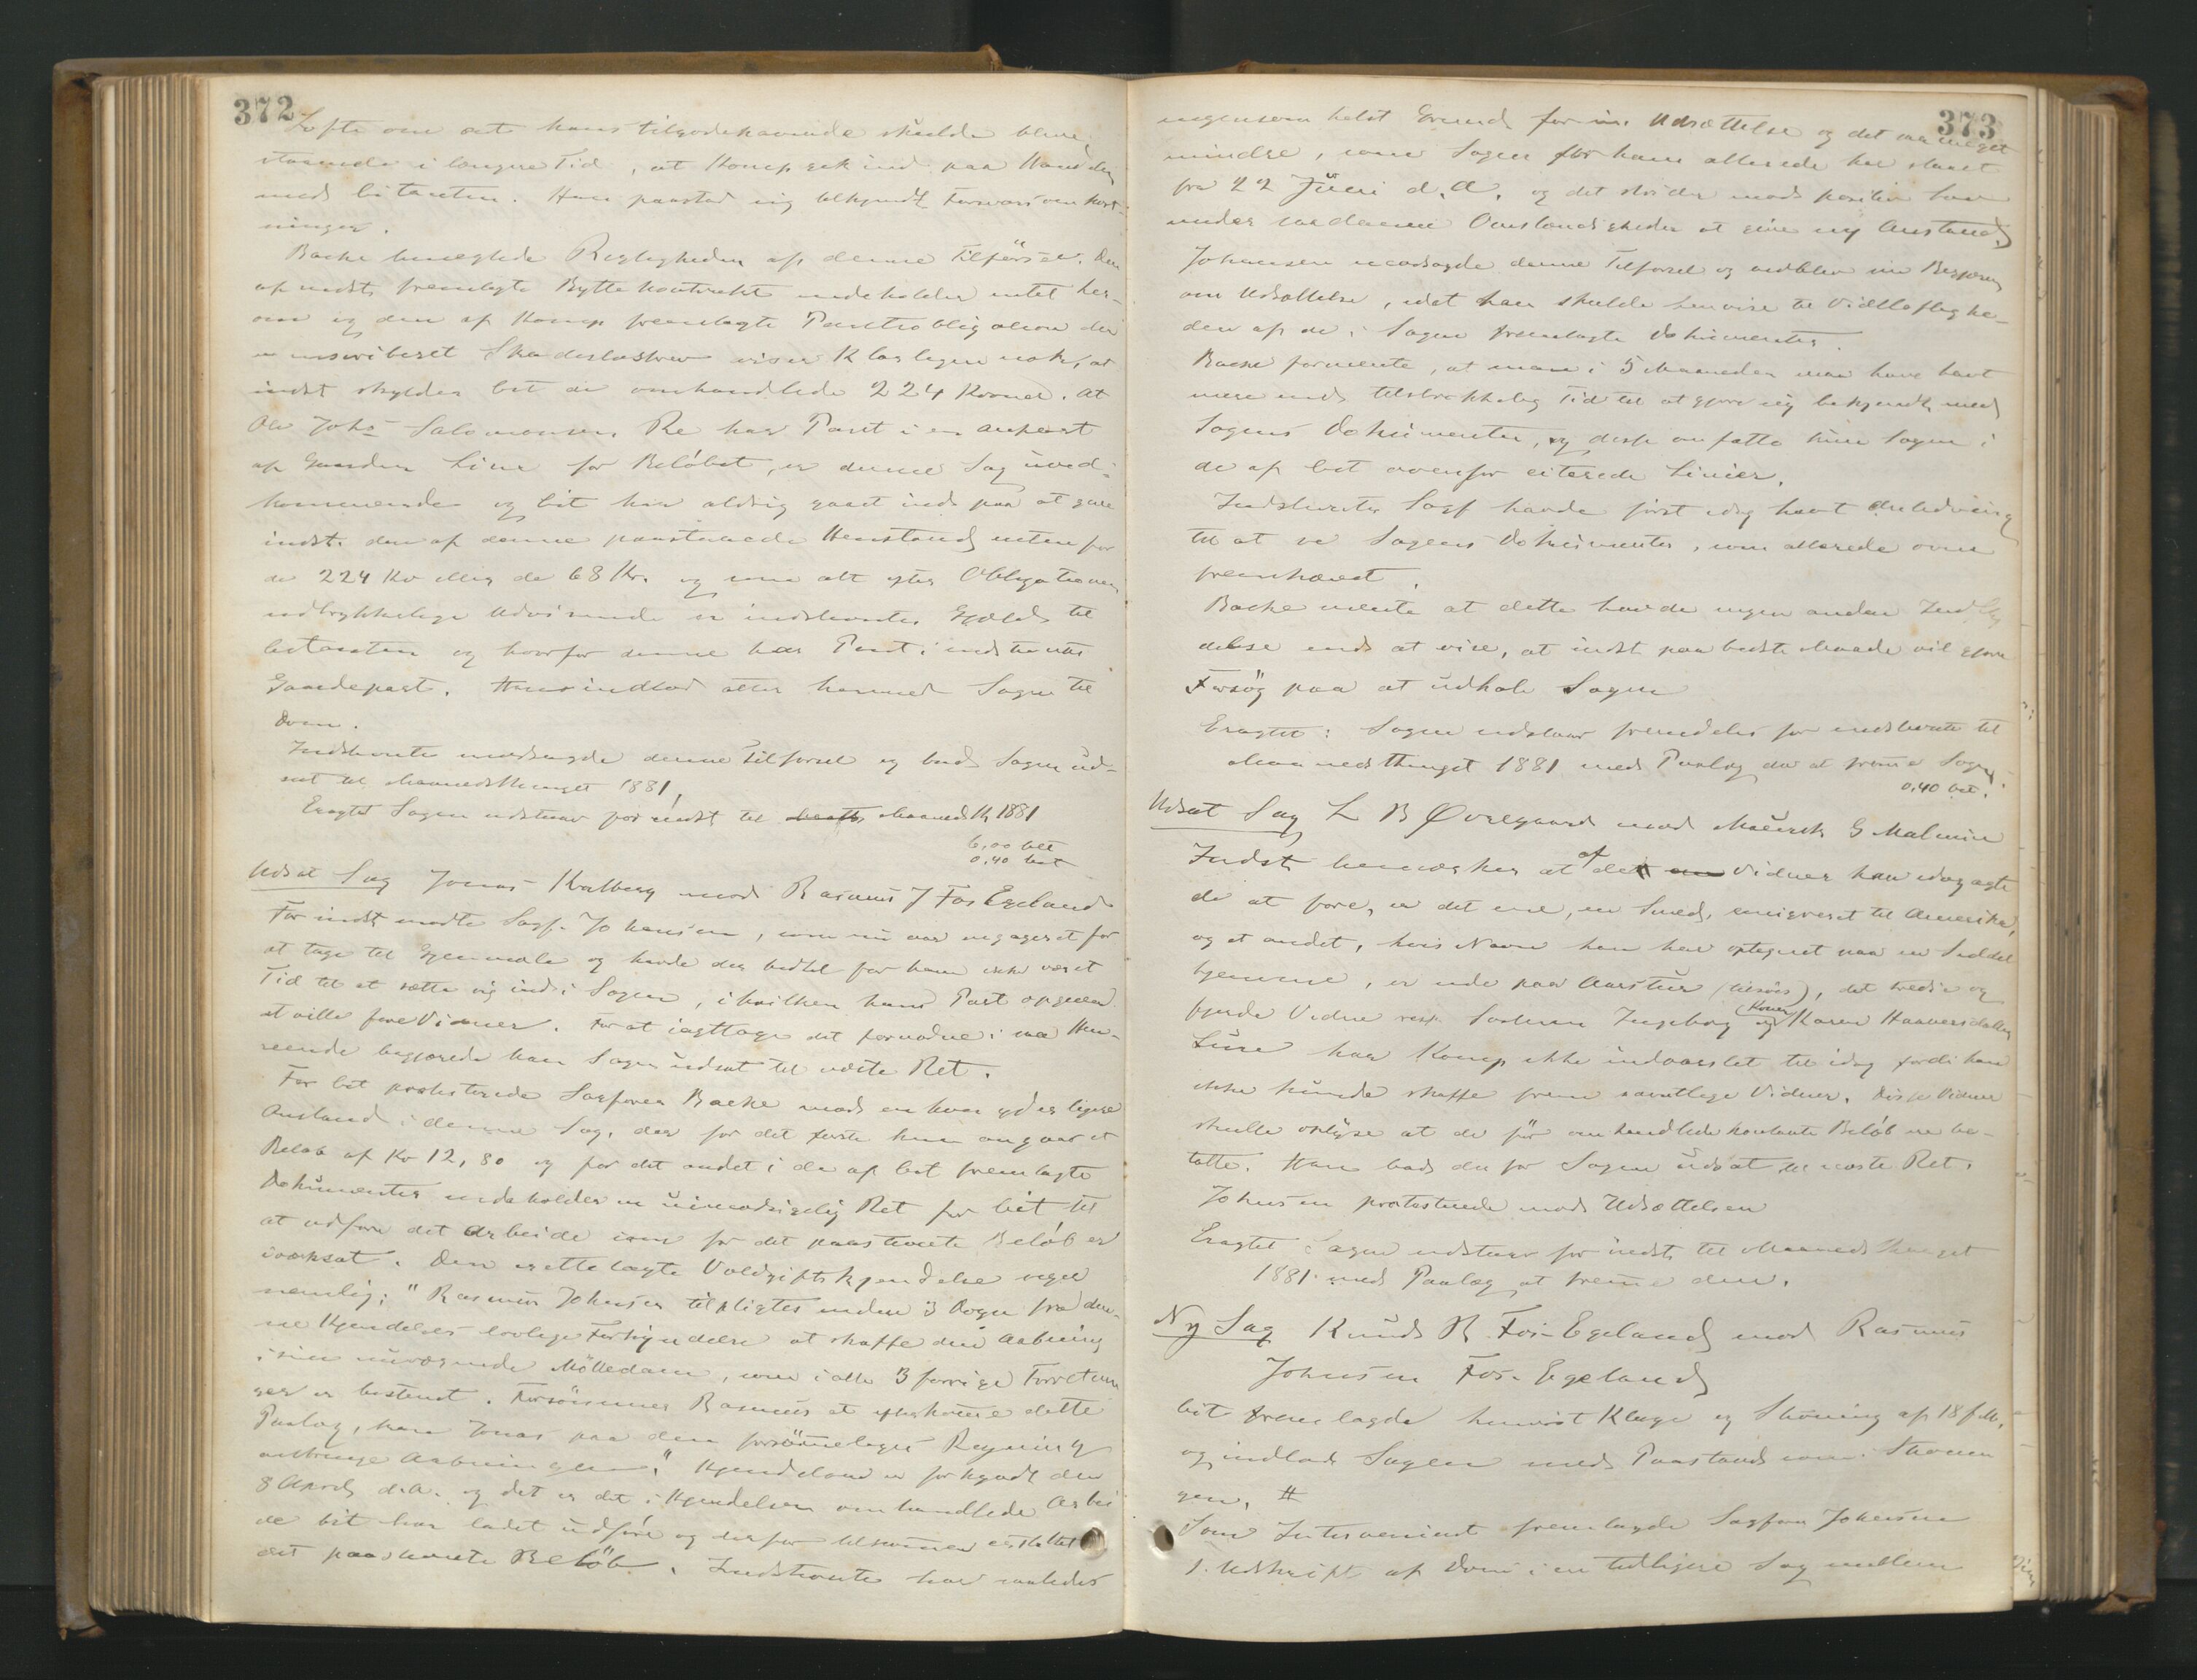 372
Løfte om at hans tilgodehavende skulde blive
staaende i længere Tid, at Komp gik ind paa Handelen
med Citanten. Han paastod sig tilkjendt Forsvarsomkost-
ninger.
Backe benegtede Rigtigheden af denne Tilførsel. Den
af indst. fremlagte Byttekontrakt indeholder intet her-
om og den af Komp fremlagte Pantobligation der
er Skadesløsbrev viser Klarligen nok, at
indst skylder Cit de omhandlede 224 Kroner. At
Ole Johs Salomonsen Re har Pant i en anpart
af Gaarden Line for Beløbet, er denne Sag uved-
kommende og Cit har aldrig gaaet ind paa at give
indst. den af denne paastaaede Henstand enten for
de 224 Kr eller de 68 Kr. og som alt efter Obligationens
udtrykkelige Udvisende er indstevntes Gjæld til
Citanten og hvorfor denne har Pant i indstevntes
Gaardepart. Han indlod atter hermed Sagen til
Dom.
Indstevnte modsagde denne Tilførsel og bad Sagen ud-
sat til Maanedsthinget 1881,
Eragtet Sagen udstaar for indst til Maanedsth 1881
6,00 blt
0,40 bet
Udsat Sag Jonas Kvalberg mod Rasmus J Fos Egeland
For indst mødte Sagf. Johansen, som nu var engageret for
at tage til Gjenmæle og havde der hidtil for ham ikke været
Tid til at sætte sig ind i Sagen, i hvilken hans Part opgiver
at ville føre Vidner. For at iagttage det fornødne i saa Hen-
seende begjærede han Sagen udsat til næste Ret.
For Cit protesterede Sagfører Backe mod en hver yderligere
Anstand i denne Sag, der for det første kun angaar et
Beløb af Kr 12,80 og for det andet i de af Cit fremlagte
Dokumenter indeholder en uimodsigelig Ret for Cit til
at udføre det Arbeide som for det paastevnte Beløb er
iværksat. Den irettelagte Voldgiftskjendelse siger
nemlig: "Rasmus Johnsen tilpligtes inden 3 Dage fra den-
ne Kjendelses lovlige Forkyndelse at skaffe den Aabning
i sin nuværende Mölledam, som i alle 3 forrige Forretnin
ger er bestemt. Forsömmer Rasmus at efterkomme dette
Paalæg, kan Jonas paa den forsömmeliges Regning
anbringe Aabningen." Kjendelsen er forkyndt den
8 April d.A. og det er det i Kjendelsen omhandlede Arbei
de Cit har ladet udføre og derfor tilkommer erstattet
det paastevnte Beløb. Indstevnte har saaledes
373
ingensom helst Grund for sin Udsættelse og det saa meget
mindre, som Sagen for ham allerede har staaet
fra 22 Juni d.A. og det strider mod positiv Lov
under saadanne Omstændigheder at give ny Anstand.
Johansen modsagde denne Tilførsel og vedblev sin Begjæring
om Udsættelse, idet han skulde henvise til Vidtløftighe-
den af de i Sagen fremlagte Dokumenter.
Backe formente, at man i 5 Maaneder maa have havt
mere end tilstrækkelig Tid til at gjøre sig bekjendt med
Sagens Dokumenter, og disse omfatte kun Sagen i
de af Cit ovenfor citerede Linier.
Indstevntes Sagf havde først idag havt Anledning
til at se Sagens Dokumenter, som allerede oven
fremhævet.
Backe mente at dette havde ingen anden
delse end at vise, at indst paa bedste Maade vil gjøre
Forsög paa at udhale Sagen
Eragtet: Sagen udstaar fremdeles for indstevnte til
Maanedsthinget 1881 med Paalæg da at fremme Sagen
0,40 bet.
Udsat Sag L B Øvregaard mod Maurits G Malmin
Indst bemærker at af de Vidner han idag agte
de at føre, er det ene, en Smed, emigreret til Amerika,
og et andet, hvis Navn han har optegnet paa en Seddel
hjemme, er ude paa Aarstur (tilsøs), det tredie og
fjerde Vidne Ingeborg og (Kone) Karen Haaversdatter
Line har Komp ikke indvarslet til idag fordi han
ikke kunde skaffe frem samtlige Vidner. Disse Vidner
skulle oplyse at de før omhandlede kontante Beløb er be-
talte. Han bad derfor Sagen udsat til næste Ret.
Johnsen protesterede mod Udsættelsen
Eragtet: Sagen udstaar for indst til Maanedsthinget
1881 med Paalæg at fremme den.
Ny Sag Knud R. Fos-Egeland mod Rasmus
Johnsen Fos-Egeland
Cit fremlagde Klage og Stevning af 18 f.M.
og indlod Sagen med Paastand som i Stevnin
gen. #
Som Intervenient fremlagde Sagfører Johnsen
1. Udskrift af Dom i en tidligere Sag mellem